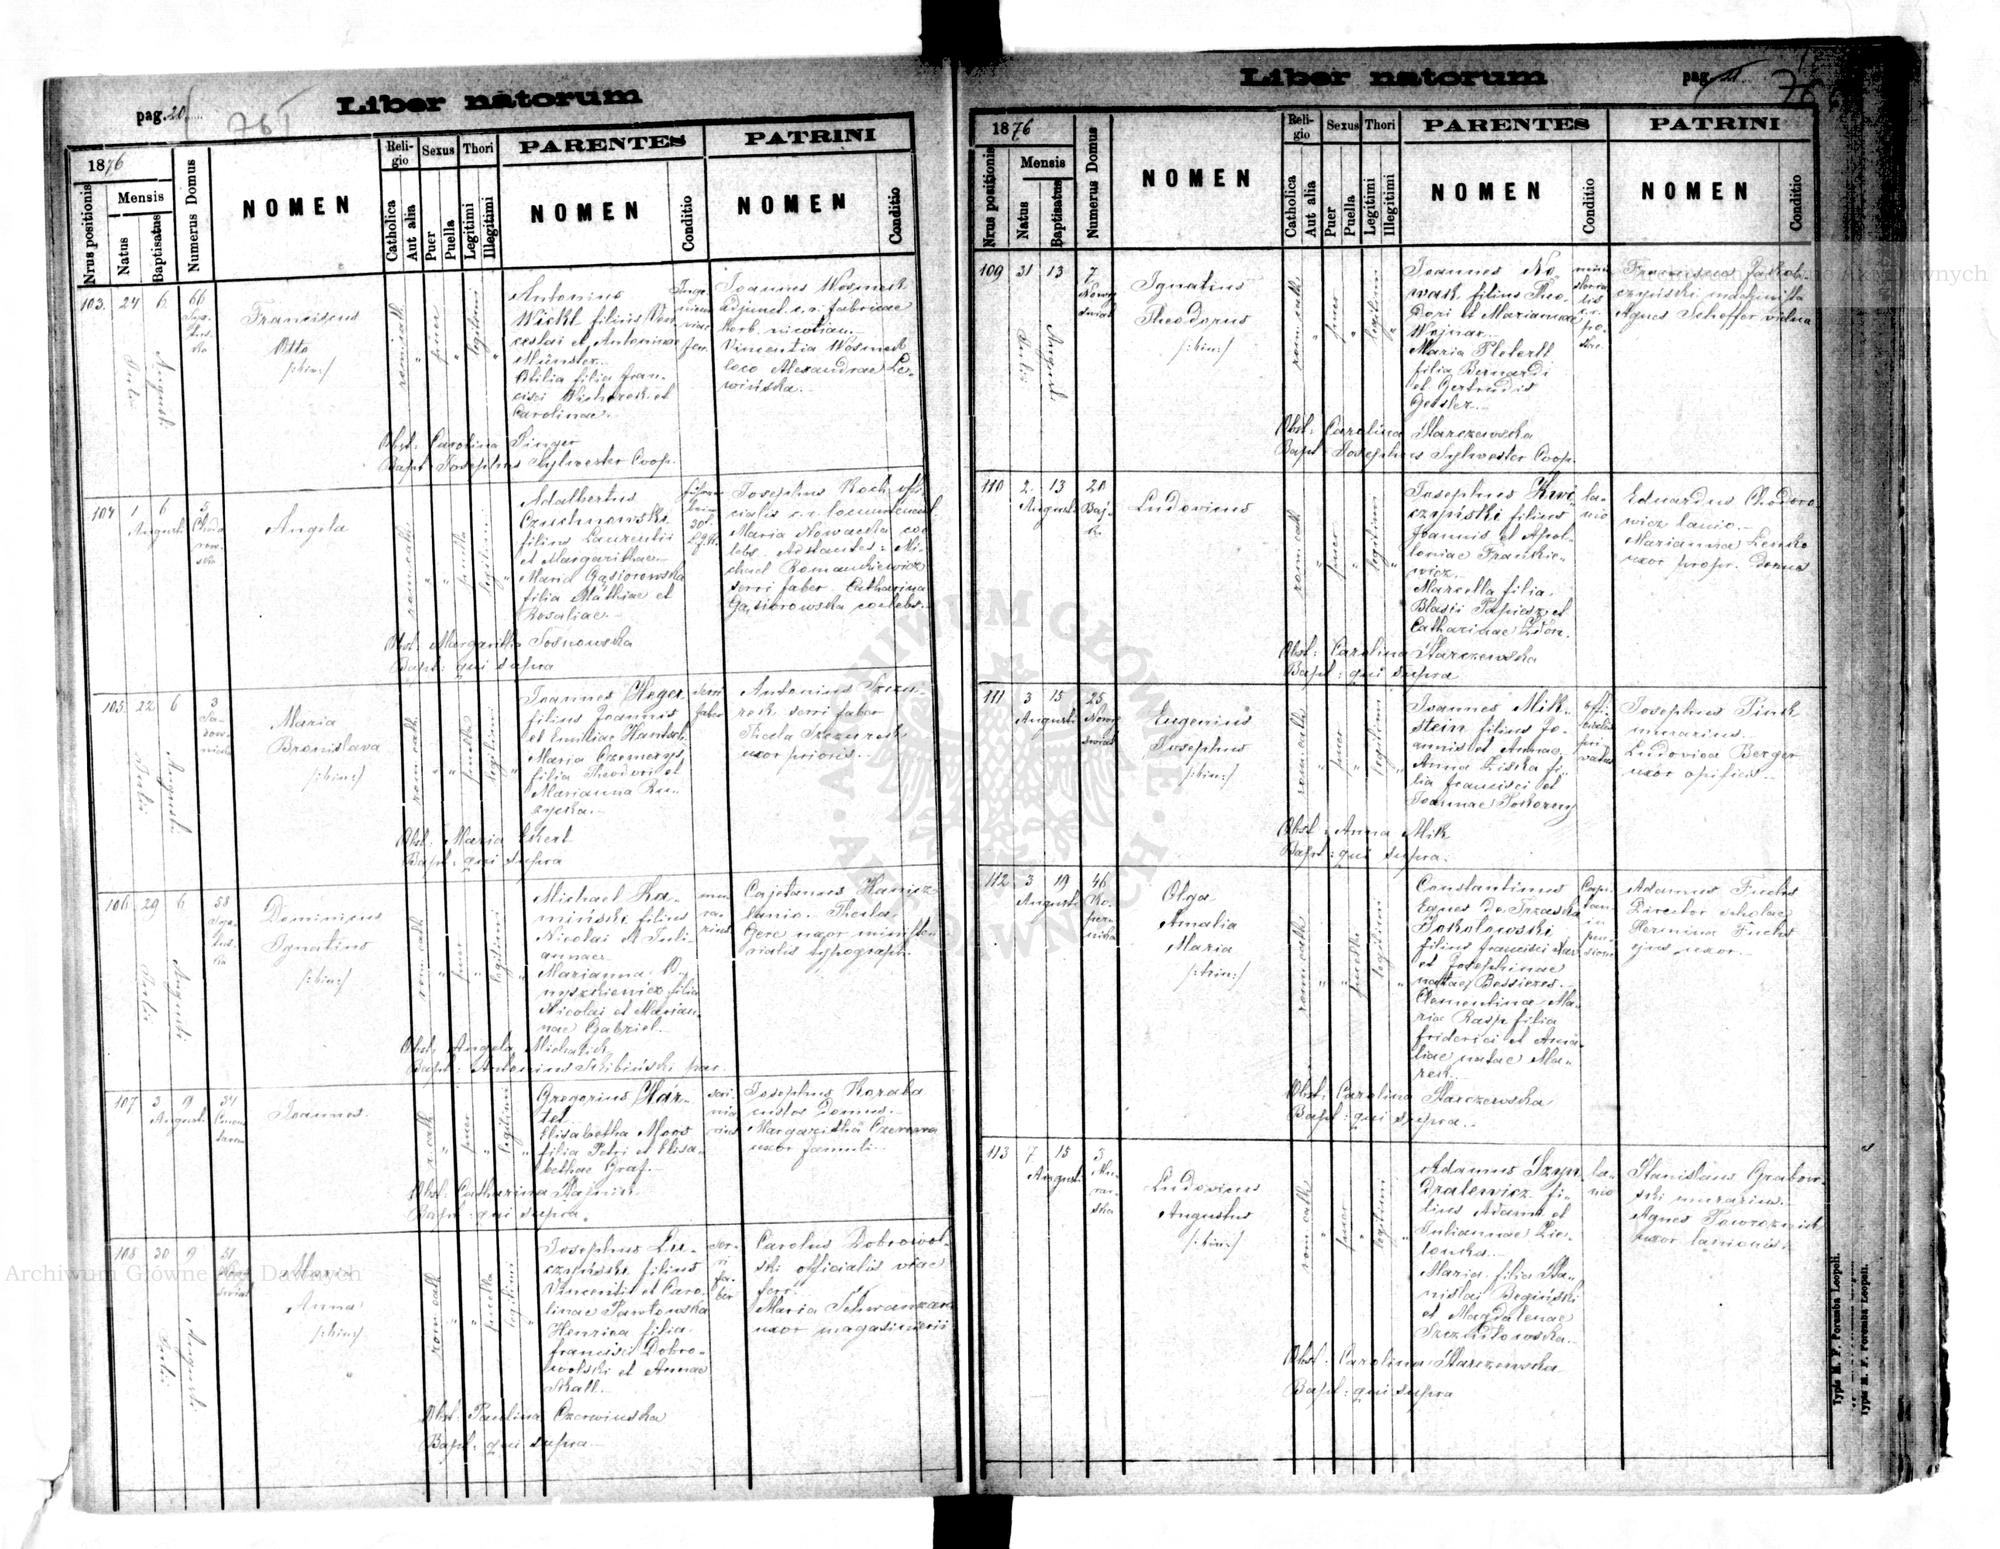 Liber natorum
pag. 20.
76
1876
Nrus positionis
Mensis
Natus
Baptisatus
Numerus Domus
NOMEN
Religio
Catholica
Aut alia
Sexus
Puer
Puella
Thori
Legitimi
Illegitimi
PARENTES
NOMEN
Conditio
PATRINI
NOMEN
Conditio
103. 24 6 66
Juli
Augusti
Franciscus
Otto
/:bin:/
rom cath
puer
legitimi
Antonius
Wickl filius Ven-
ceslai et Antoninae
Münster.
Otilia filia Fran-
cisci Wichorek et
Carolinae.
Joannes Wosmek
adjunct. c. r. fabricae
herb. nicotian.
Vincentia Wosmek
loco Alexandrae Le-
wińska.
Obst: Carolina Singer
Bapt: Josephus Sylwester Coop.
104 1 6 5
August.
Angela
rom cath
puella
legitimi
Adalbertus
Czuchnowski
filius Laurentii
et Margarithae.
Maria Gąsiorowska
filia Mathiae et
Rosaliae.
Josephus Koch offi-
cialis c. r. locumtenent.
Maria Nowacka coe-
lebs. Adstantes: Mi-
chael Romankiewicz
ferri faber Catharina
Gąsiorowska coelebs.
Obst: Margaritha Sosnowska
Bapt: qui supra
105. 22 6 3
Juli
Augusti
Maria
Bronislava
/:bin:/
rom cath
puella
legitimi
Joannes Heger
filius Joannis
et Emiliae Hantsch.
Maria Czemerys
filia Theodori et
Marianna Ru-
zycka.
ferri
faber
Antonius Szczu-
rek ferri faber
Thecla Szczurek
uxor prioris.
Obst: Maria Ekert
Bapt: qui supra
106. 29 6 58
Juli
Augusti
Dominicus
Ignatius
/:bin:/
rom cath
puer
legitimi
Michael Ka-
miński filius
Nicolai et Juli-
annae.
Marianna Dy-
myszkiewicz filia
Nicolai et Marian-
nae Gabriel.
mu-
ra-
rius
Cajetanus Kanicz
lanio. Thecla
Gere uxor ministe-
rialis typograph.
Obst: Angela Michalik
Bapt: Antonius Skibiński par.
107 3 9 34
August.
Joannes.
rom cath
puer
legitimi
Gregorius Mar-
tel.
Elisabetha Moos
filia Petri et Elisa-
bethae Graf.
Josephus Koraba
custos Domus.
Margaritha Czerewa
uxor famuli.
Obst: Catharina Stajnik
Bapt: qui supra.
108 30 9 31
Juli
Augusti
Maria
Anna
/:bin:/
rom cath
puella
legitimi
Josephus Lu-
czyński filius
Vincentii et Caro-
linae Pawłowska
Henrica filia
Francisci Dobro-
wolski et Annae
Skall.
fer-
ri
fa-
ber
Carolus Dobrowol-
ski officialis viae
ferr.
Maria Schwanzar
uxor magasinerii
Obst: Paulina Czerwinska
Bapt: qui supra
Liber natorum
pag. 21.
76
1876
Nrus positionis
Mensis
Natus
Baptisatus
Numerus Domus
NOMEN
Religio
Catholica
Aut alia
Sexus
Puer
Puella
Thori
Legitimi
Illegitimi
PARENTES
NOMEN
Conditio
PATRINI
NOMEN
Conditio
109 31 13 7
Nowy
świat
Juli
August.
Ignatius
Theodorus
/:bin:/
rom cath
puer
legitimi
Joannes No-
wak filius Theo-
dori et Mariannae
Wojnar.
Maria Pleterlt
filia Bernardi
et Gertrudis
Gessler.
Franciscus Paskol-
czyński machinista
Agnes Scheffer vidua
Obst: Carolina Starczewska
Bapt: Josephus Sylwester Coop.
110 2 13 20
August. Baj-
k.
Ludovicus
rom cath
puer
legitimi
Josephus Kwi-
czyński filius
Joannis et Apol-
loniae Frankie-
wicz.
Marcella filia
Blasii Papiesz et
Catharinae Zion.
la-
nio
Eduardus Chodoro-
wicz lanio.
Marianna Lenko
uxor propr. Domus
Obst: Carolina Starczewska
Bapt: qui supra
111 3 15 25
Augusti Nowy
świat
Eugenius
Josephus
/:bin:/
rom cath
puer
legitimi
Joannes Mik-
stein filius Jo-
annis et Annae.
Anna Liska fi-
lia Francisci et
Joannae Pokorny
offi-
cialis
pri-
vatus
Josephus Pink
murarius.
Ludovica Berger
uxor opificis.
Obst: Anna Mik
Bapt: qui supra.
112 3 19 46
August. Ko-
per-
nika
Olga
Amalia
Maria
/:bin:/
rom cath
puella
legitimi
Constantinus
Eques de Trzaska
Sokołowski
filius Francisci
et Josephinae
natae Bessieres.
Clementina Ma-
ria Rasp filia
Friderici et Ama-
liae natae Ma-
rek.
Capi-
tan
in
pen-
sione
Adamus Fuchs
Director scholae
Hermina Fuchs
ejus uxor.
Obst: Carolina Starczewska
Bapt: qui supra.
113 7 15 3
August.
Ludovicus
Augustus
/:bin:/
rom cath
puer
legitimi
Adamus Szyn-
dralewicz fi-
lius Adami et
Juliannae Zie-
lonka.
Maria filia Sta-
nislai Begiński
et Magdalenae
Szczutowska.
la-
nio
Stanislaus Grabow-
ski murarius.
Agnes Powroznicka
uxor lanionis.
Obst: Carolina Starczewska
Bapt: qui supra
Typis M. F. Poremba Leopoli.
Typis M. F. Poremba Leopoli.
Archiwum Główne Akt Dawnych
Archiwum Główne Akt Dawnych
ARCHIWUM GŁÓWNE AKT DAWNYCH